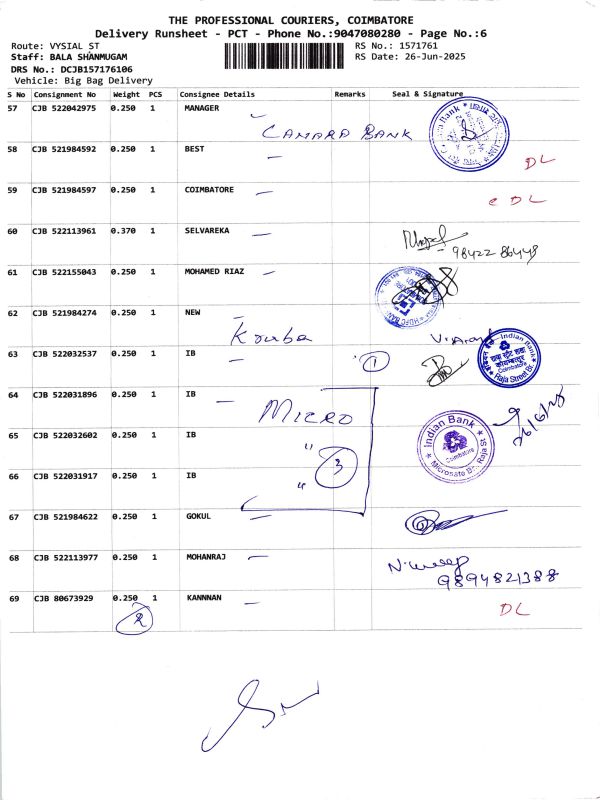 THE PROFESSIONAL COURIERS, COIMBATORE
Delivery Runsheet - PCT - Phone No.:9047080280 - Page No.:6
Route: VYSIAL ST RS No.: 1571761
Staff: BALA SHANMUGAM RS Date: 26-Jun-2025
DRS No.: DCJB157176106
Vehicle: Big Bag Delivery
S No Consignment No Weight PCS Consignee Details Remarks Seal & Signature
57 CJB 522042975 0.250 1 MANAGER
CANARA BANK
58 CJB 521984592 0.250 1 BEST DL
59 CJB 521984597 0.250 1 COIMBATORE CDL
60 CJB 522113961 0.370 1 SELVAREKA
98422 86448
61 CJB 522155043 0.250 1 MOHAMED RIAZ
62 CJB 521984274 0.250 1 NEW
63 CJB 522032537 0.250 1 IB 1
Indian Bank
Coimbatore
Raja Street Br.
64 CJB 522031896 0.250 1 IB
MICRO
26/6/25
65 CJB 522032602 0.250 1 IB
" 3
Indian Bank
Coimbatore
Microsate Br. Raja St
66 CJB 522031917 0.250 1 IB
"
67 CJB 521984622 0.250 1 GOKUL
68 CJB 522113977 0.250 1 MOHANRAJ
9894821388
69 CJB 80673929 0.250 1 KANNNAN DL
2